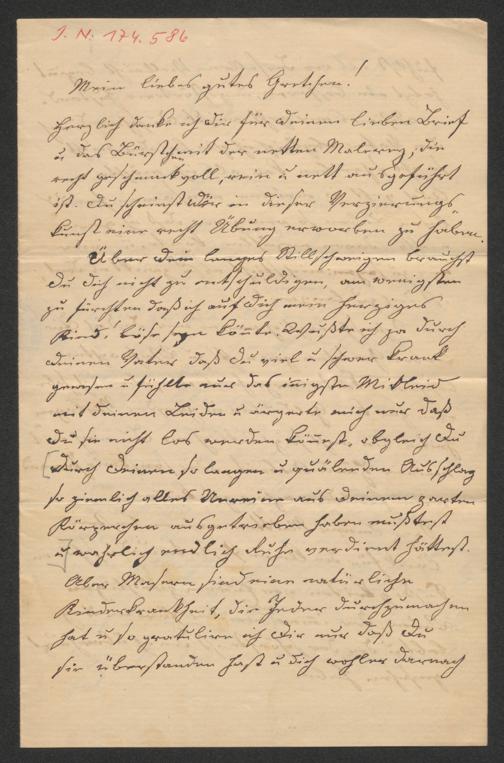 J. N. 174.586
Mein liebes gutes Gretchen!
Herzlich danke ich Dir für Deinen lieben Brief
u das Bürstchen mit der netten Malerey, die
recht geschmackvoll, rein u nett ausgeführt
ist. Du scheinst Dir in dieser Verzierungs-
kunst eine recht Übung erworben zu haben.
Über Dein langes Stillschweigen brauchst
Du Dich nicht zu entschuldigen, am wenigsten
zu fürchten daß ich auf Dich mein herziges
Kind! böse seyn könnte. Wußte ich ja durch
Deinen Vater daß Du viel u schwer krank
gewesen u fühlte nur das innigste Mitleid
mit Deinen Leiden u ärgerte mich nur daß
Du sie nicht los werden könntest, obgleich Du
[durch Deinen so langen u quälenden Ausschlag
so ziemlich alles Unreine aus Deinem zarten
Körperchen ausgetrieben haben mußtest
u wahrlich endlich Ruhe verdient hättest.]
Aber Masern sind eine natürliche
Kinderkrankheit, die Jeder durchzumachen
hat u so gratulire ich Dir nur daß Du
sie überstanden hast u Dich wohler darnach